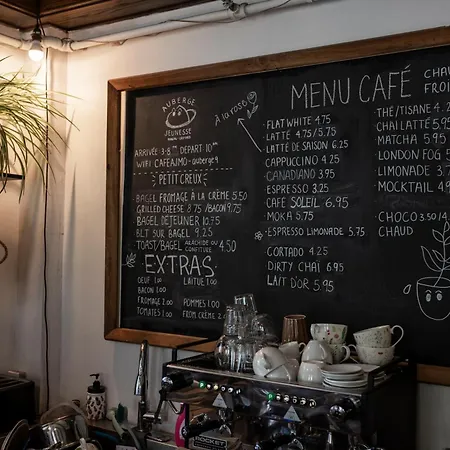 AUBERGE
JEUNESSE
ARRIVÉE 3-8 PM, DEPART 10 AM
WIFI CAFEAJMO - auberge9
PETIT CREUX
BAGEL FROMAGE À LA CRÈME 5.50
GRILLED CHEESE 8.75 /BACON 9.75
BAGEL DEJEUNER 10.75
BLT SUR BAGEL 9.25
TOAST/BAGEL ARACHIDE OU CONFITURE 4.50
EXTRAS
OEUF 1.00 LAITUE 1.00
BACON 1.00
FROMAGE 2.00 POMMES 1.00
TOMATES 1.00 FROM CRÈME 2.25
À LA ROSE
MENU CAFÉ
FLAT WHITE 4.75
LATTÉ 4.75/5.75
CAPPUCCINO 4.75
CANADIANO 3.25
ESPRESSO 3.25
CAFÉ SOLEIL 6.95
MOKA 5.75
ESPRESSO LIMONADE 5.75
CORTADO 4.25
DIRTY CHAÏ 6.95
LAIT D'OR 5.95
CHAU
FROI
THÉ/TISANE 4.
CHAÏ LATTÉ 5.95
MATCHA 5.95
LONDON FOG 5.
LIMONADE 3.75
MOCKTAIL 4.9
CHOCO 3.50/4
CHAUD
ROCKET